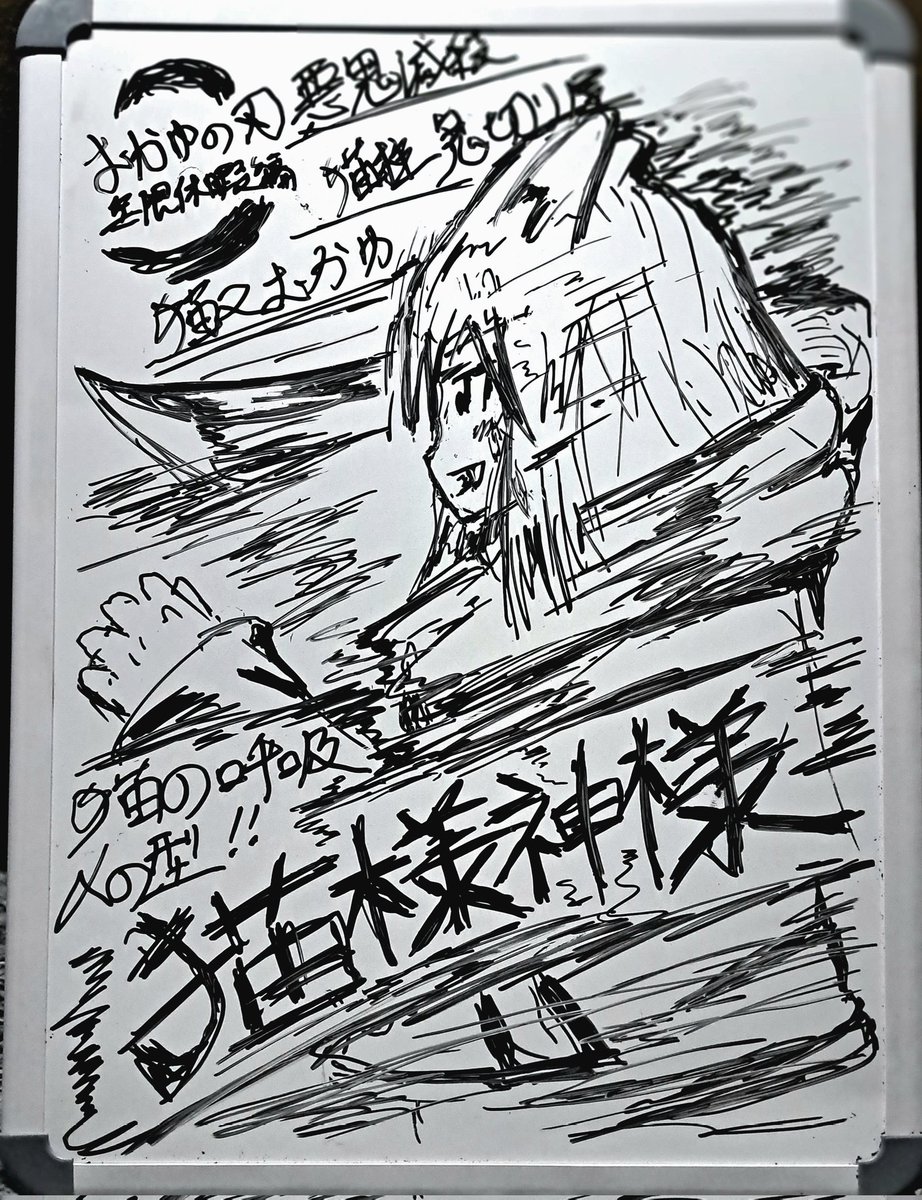 おかゆの刃
無限休暇編
悪鬼滅殺
猫柱 鬼切り
猫又おかゆ
猫の呼吸
〆の型!!
猫様神様